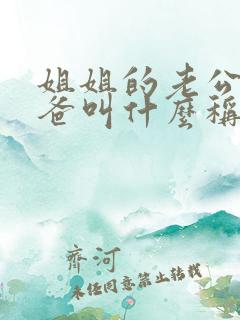 姐姐的老公
爸叫什麼稱
齊河
未经同意禁止转载